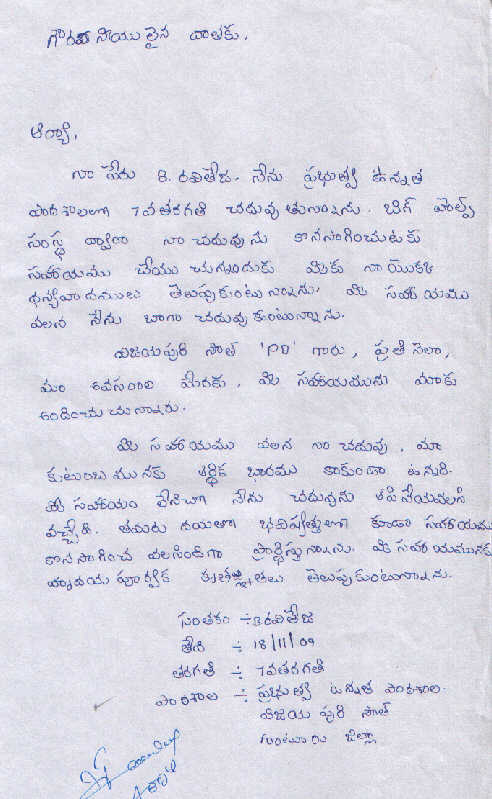 గౌరవనీయులైన దాతకు.
ఆర్యా,
నా పేరు B. రవితేజ. నేను ప్రభుత్వ ఉన్నత
పాఠశాలలో 7వతరగతి చదువుతున్నాను. బిగ్ హెల్ప్
సంస్థ ద్వారా నా చదువును కొనసాగించుటకు
సహాయము చేయుచున్నందుకు మీకు నా యొక్క
ధన్యవాదములు తెలుపుకుంటున్నాను. మీ సహాయము
వలన నేను బాగా చదువుకుంటున్నాను.
విజయపురి సౌత్ 'PD' గారు, ప్రతి నెలా,
మా అవసరాల మేరకు, మీ సహాయమును మాకు
అందించుచున్నారు.
మీ సహాయము వలన నా చదువు, మా
కుటుంబమునకు ఆర్థిక భారము కాకుండా ఉన్నది.
మీ సహాయం లేనిచో నేను చదువును ఆపివేయవలసి
వచ్చేది. తమరు దయతో భవిష్యత్తులో కూడా సహాయము
కొనసాగించవలసిందిగా ప్రార్థిస్తున్నాను. మీ సహాయమునకు
హృదయపూర్వక కృతజ్ఞతలు తెలుపుకుంటున్నాను.
సంతకం ÷ B రవితేజ
తేది ÷ 18/11/09
తరగతి ÷ 7వతరగతి
పాఠశాల ÷ ప్రభుత్వ ఉన్నత పాఠశాల.
విజయపురి సౌత్
గుంటూరు జిల్లా